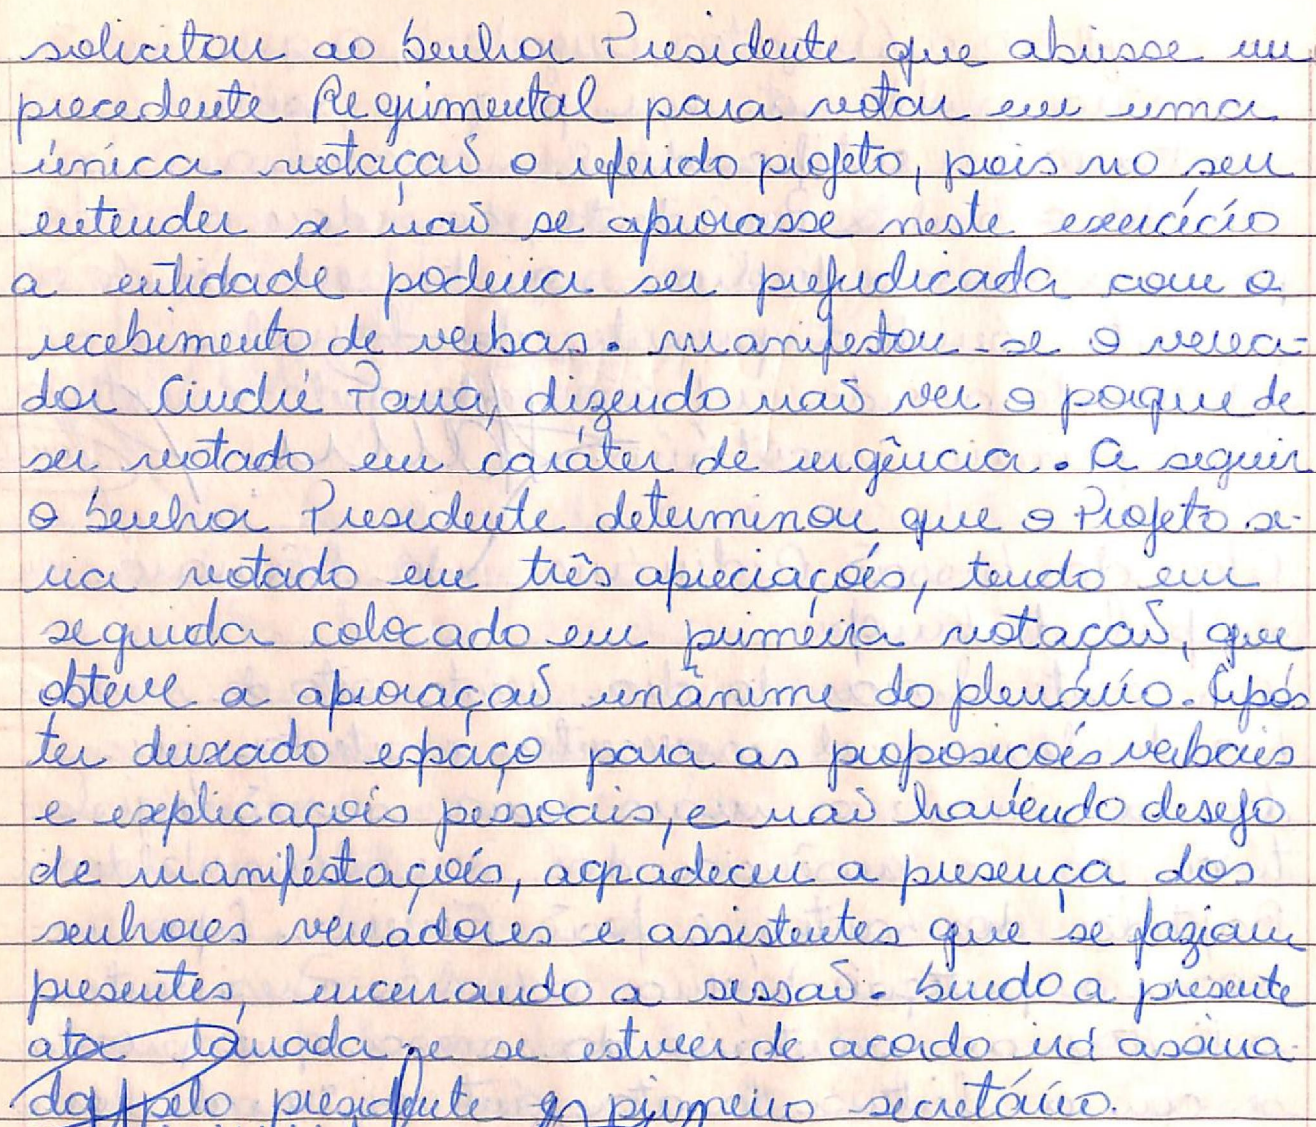 solicitou ao Senhor Presidente que abrisse um
precedente Regimental para votar em uma
única votação o referido projeto, pois no seu
entender se não se aprovasse neste exercício
a entidade poderia ser prejudicada com o
recebimento de verbas. manifestou-se o verea-
dor André Pavia, dizendo não ver o porque de
ser votado em caráter de urgência. A seguir
o Senhor Presidente determinou que o Projeto se-
ria votado em três apreciações, tendo em
seguida colocado em primeira votação, que
obteve a aprovação unânime do plenário. Após
ter deixado espaço para as proposições verbais
e explicações pessoais, e não havendo desejo
de manifestações, agradeceu a presença dos
senhores vereadores e assistentes que se faziam
presentes, encerrando a sessão. Sendo a presente
ata lavrada e se estiver de acordo irá assina-
da pelo presidente primeiro secretário.